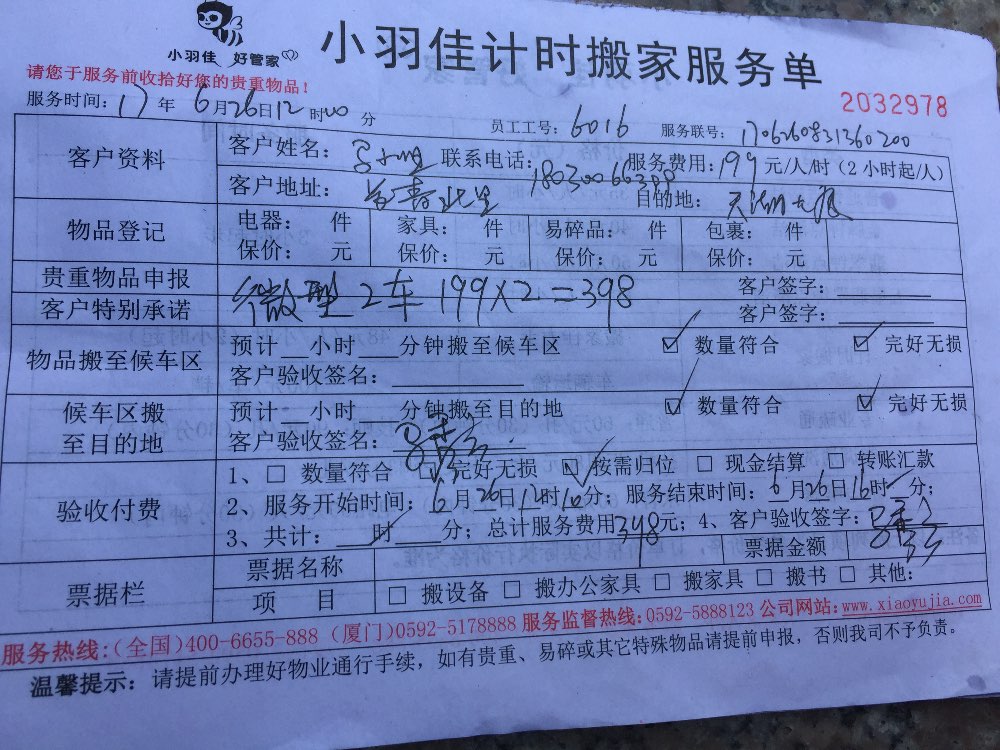 小羽佳 好管家
小羽佳计时搬家服务单
请您于服务前收拾好您的贵重物品!
2032978
服务时间: 17 年 6月26日12 时00 分 员工工号: 6016 服务联号: 1706260831360200
客户资料 客户姓名: 联系电话: 服务费用: 199 元/人/时 (2 小时起/人)
客户地址: 目的地:
物品登记 电器: 件 家具: 件 易碎品: 件 包裹: 件
保价: 元 保价: 元 保价: 元 保价: 元
贵重物品申报 客户签字:
微型2车 199X2=398
客户特别承诺 客户签字:
物品搬至候车区 预计 小时 分钟搬至候车区 ☑ 数量符合 ☑ 完好无损
客户验收签名:
候车区搬至目的地 预计 小时 分钟搬至目的地 ☑ 数量符合 ☑ 完好无损
客户验收签名:
验收付费 1、□ 数量符合 ☑ 完好无损 ☑ 按需归位 □ 现金结算 □ 转账汇款
2、服务开始时间: 6月26日12时10分; 服务结束时间: 6月26日16时 分;
3、共计: 时 分; 总计服务费用398元; 4、客户验收签字:
票据栏 票据名称 票据金额
项 目 □ 搬设备 □ 搬办公家具 □ 搬家具 □ 搬书 □ 其他:
服务热线:(全国)400-6655-888 (厦门)0592-5178888 服务监督热线:0592-5888123 公司网站:www.xiaoyujia.com
温馨提示: 请提前办理好物业通行手续，如有贵重、易碎或其它特殊物品请提前申报，否则我司不予负责。